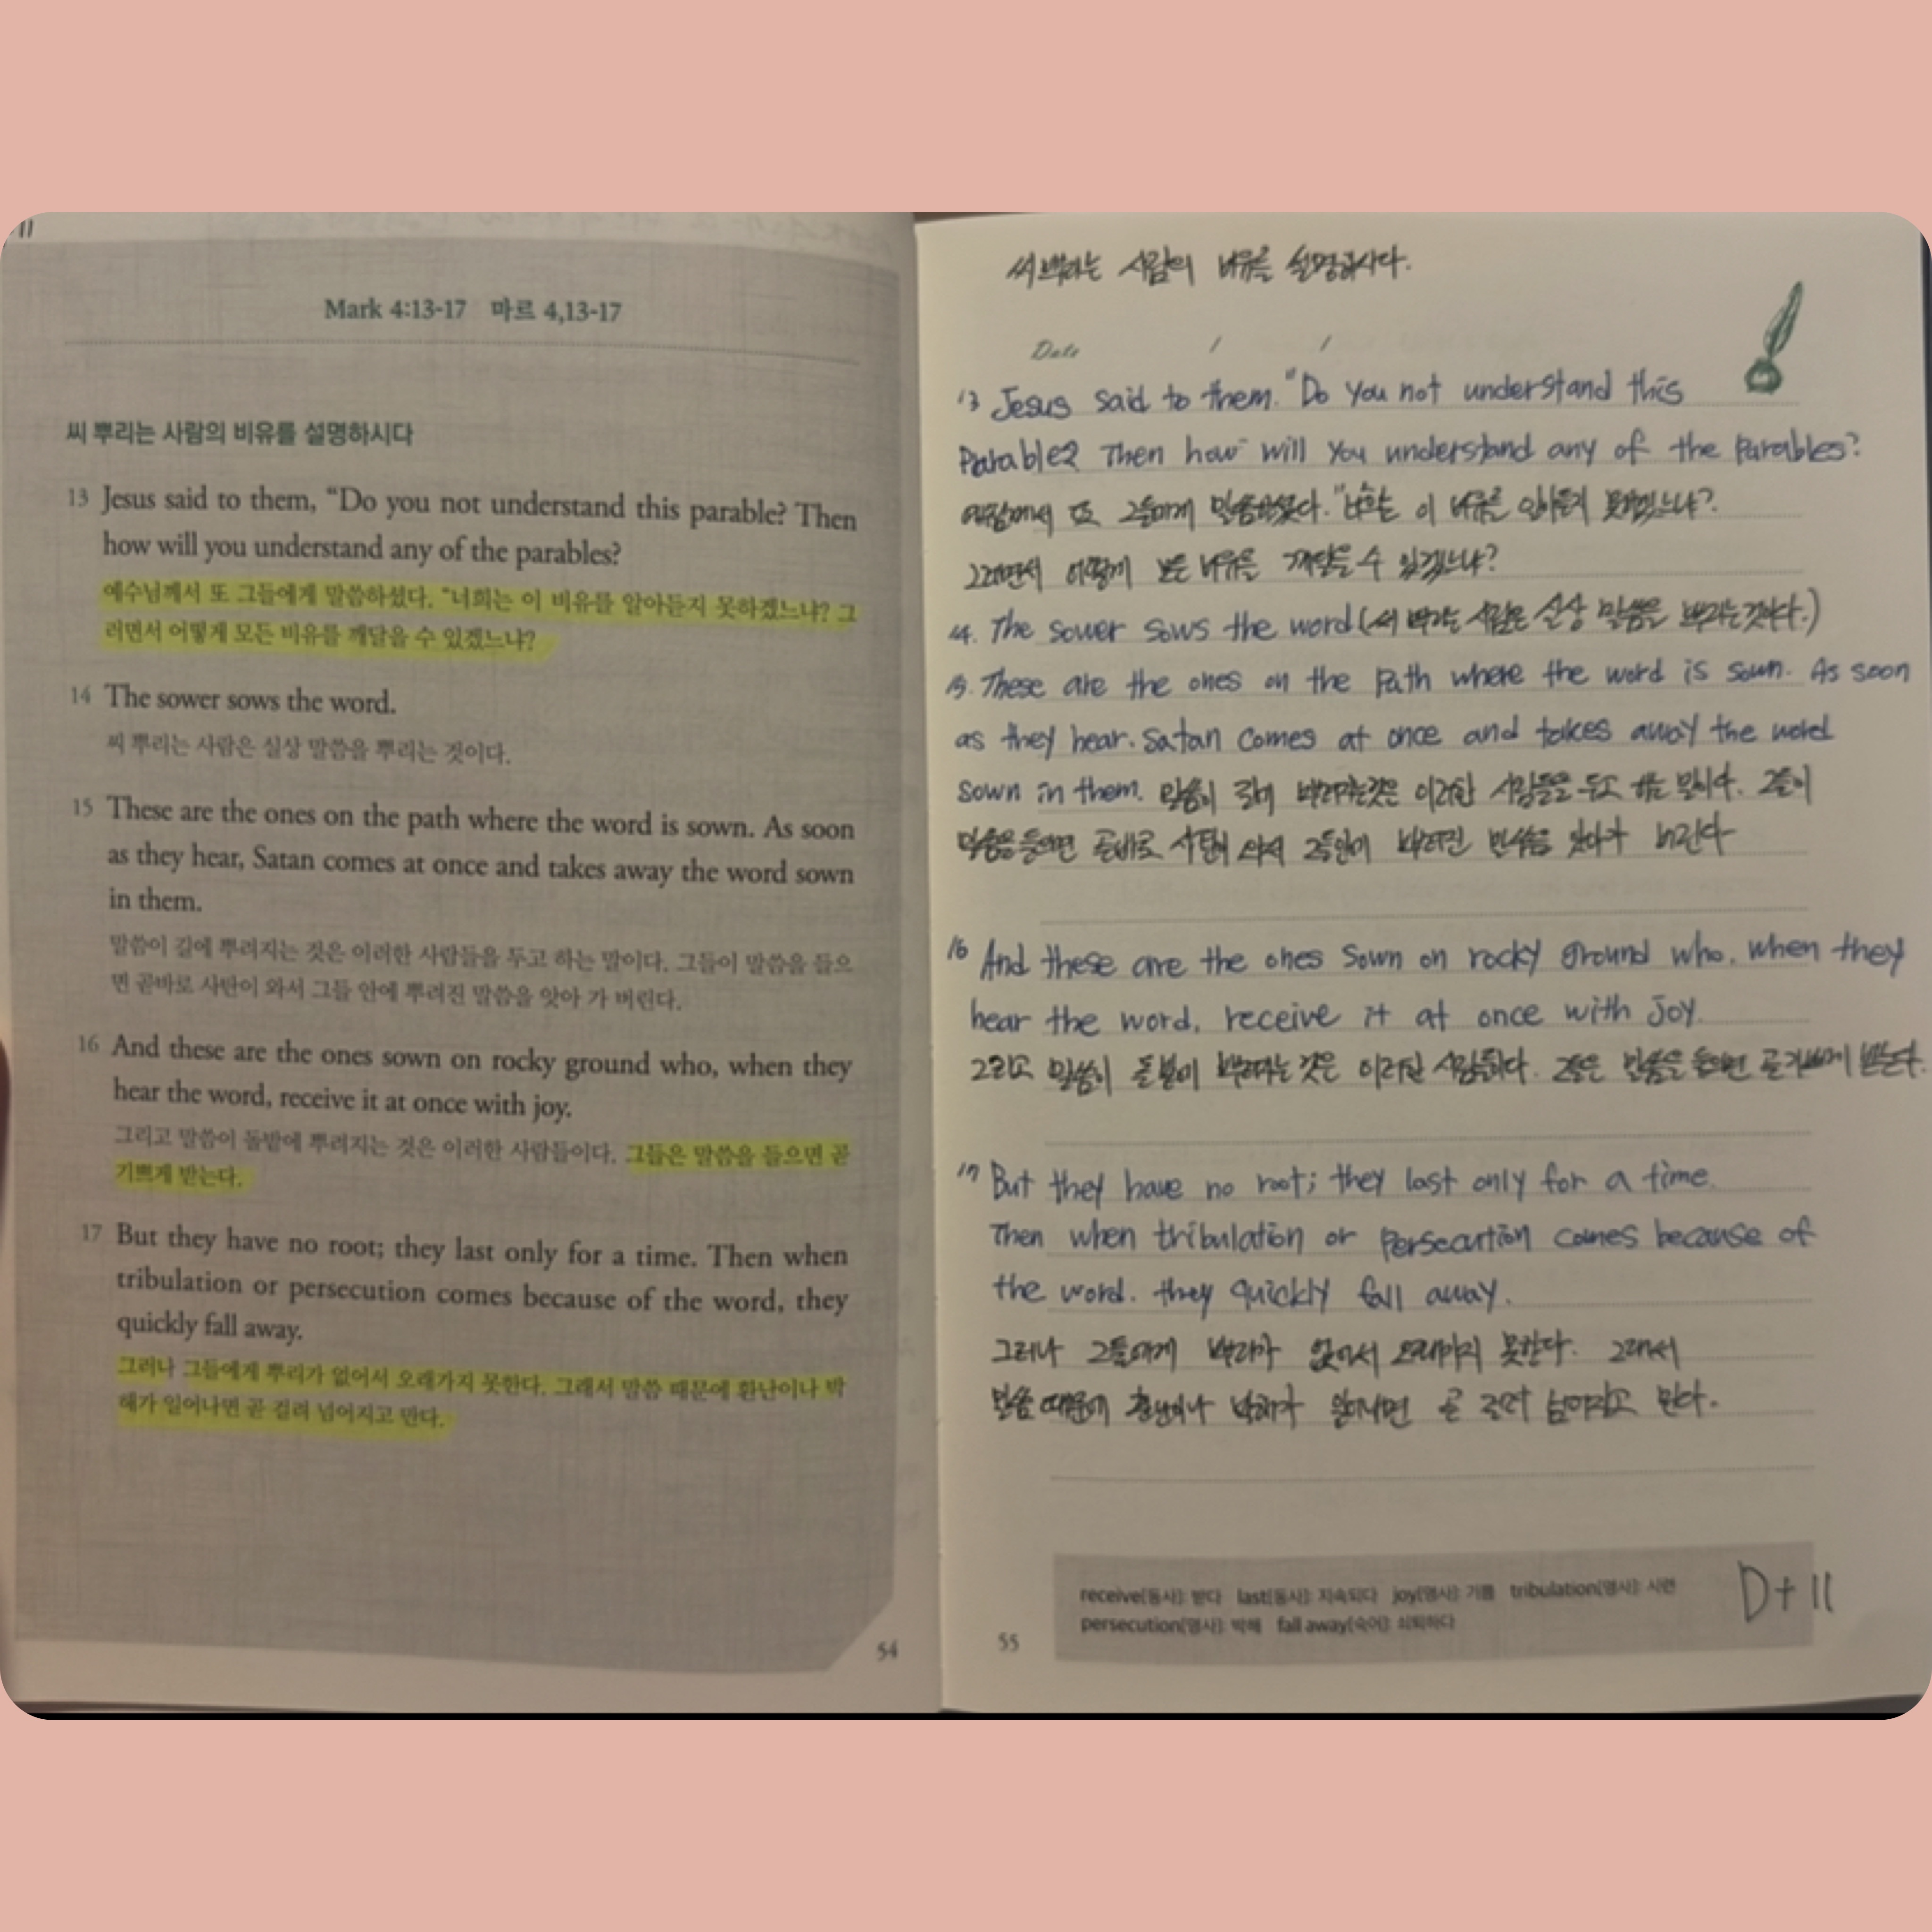 11
Mark 4:13-17 마르 4,13-17
씨 뿌리는 사람의 비유를 설명하시다
13 Jesus said to them, “Do you not understand this parable? Then
how will you understand any of the parables?
예수님께서 또 그들에게 말씀하셨다. “너희는 이 비유를 알아듣지 못하겠느냐? 그
러면서 어떻게 모든 비유를 깨달을 수 있겠느냐?
14 The sower sows the word.
씨 뿌리는 사람은 실상 말씀을 뿌리는 것이다.
15 These are the ones on the path where the word is sown. As soon
as they hear, Satan comes at once and takes away the word sown
in them.
말씀이 길에 뿌려지는 것은 이러한 사람들을 두고 하는 말이다. 그들이 말씀을 들으
면 곧바로 사탄이 와서 그들 안에 뿌려진 말씀을 앗아 가 버린다.
16 And these are the ones sown on rocky ground who, when they
hear the word, receive it at once with joy.
그리고 말씀이 돌밭에 뿌려지는 것은 이러한 사람들이다. 그들은 말씀을 들으면 곧
기쁘게 받는다.
17 But they have no root; they last only for a time. Then when
tribulation or persecution comes because of the word, they
quickly fall away.
그러나 그들에게 뿌리가 없어서 오래가지 못한다. 그래서 말씀 때문에 환난이나 박
해가 일어나면 곧 걸려 넘어지고 만다.
54
씨 뿌리는 사람의 비유를 설명하시다.
Date / /
13 Jesus said to them. "Do you not understand this
parable? Then how will you understand any of the parables?
예수님께서 또 그들에게 말씀하셨다. "너희는 이 비유를 알아듣지 못했겠느냐?
그러면서 어떻게 모든 비유를 깨달을 수 있겠느냐?
14. The sower sows the word (씨 뿌리는 사람은 실상 말씀을 뿌리는 것이다.)
15. These are the ones on the path where the word is sown. As soon
as they hear. Satan comes at once and takes away the word
sown in them. 말씀이 길에 뿌려지는것은 이러한 사람들을 두고 하는 말이다. 그들이
말씀을 들으면 곧바로 사탄이 와서 그들안에 뿌려진 말씀을 앗아가 버린다
16 And these are the ones sown on rocky ground who, when they
hear the word, receive it at once with joy.
그리고 말씀이 돌밭에 뿌려지는 것은 이러한 사람들이다. 그들은 말씀을 들으면 곧 기쁘게 받는다.
17 But they have no root; they last only for a time.
Then when tribulation or persecution comes because of
the word. they quickly fall away.
그러나 그들에게 뿌리가 없어서 오래가지 못한다. 그래서
말씀 때문에 환난이나 박해가 일어나면 곧 걸려 넘어지고 만다.
receive(동사): 받다 last(동사): 지속되다 joy(명사): 기쁨 tribulation(명사): 시련
persecution(명사): 박해 fall away(숙어): 쇠퇴하다
D+11
55